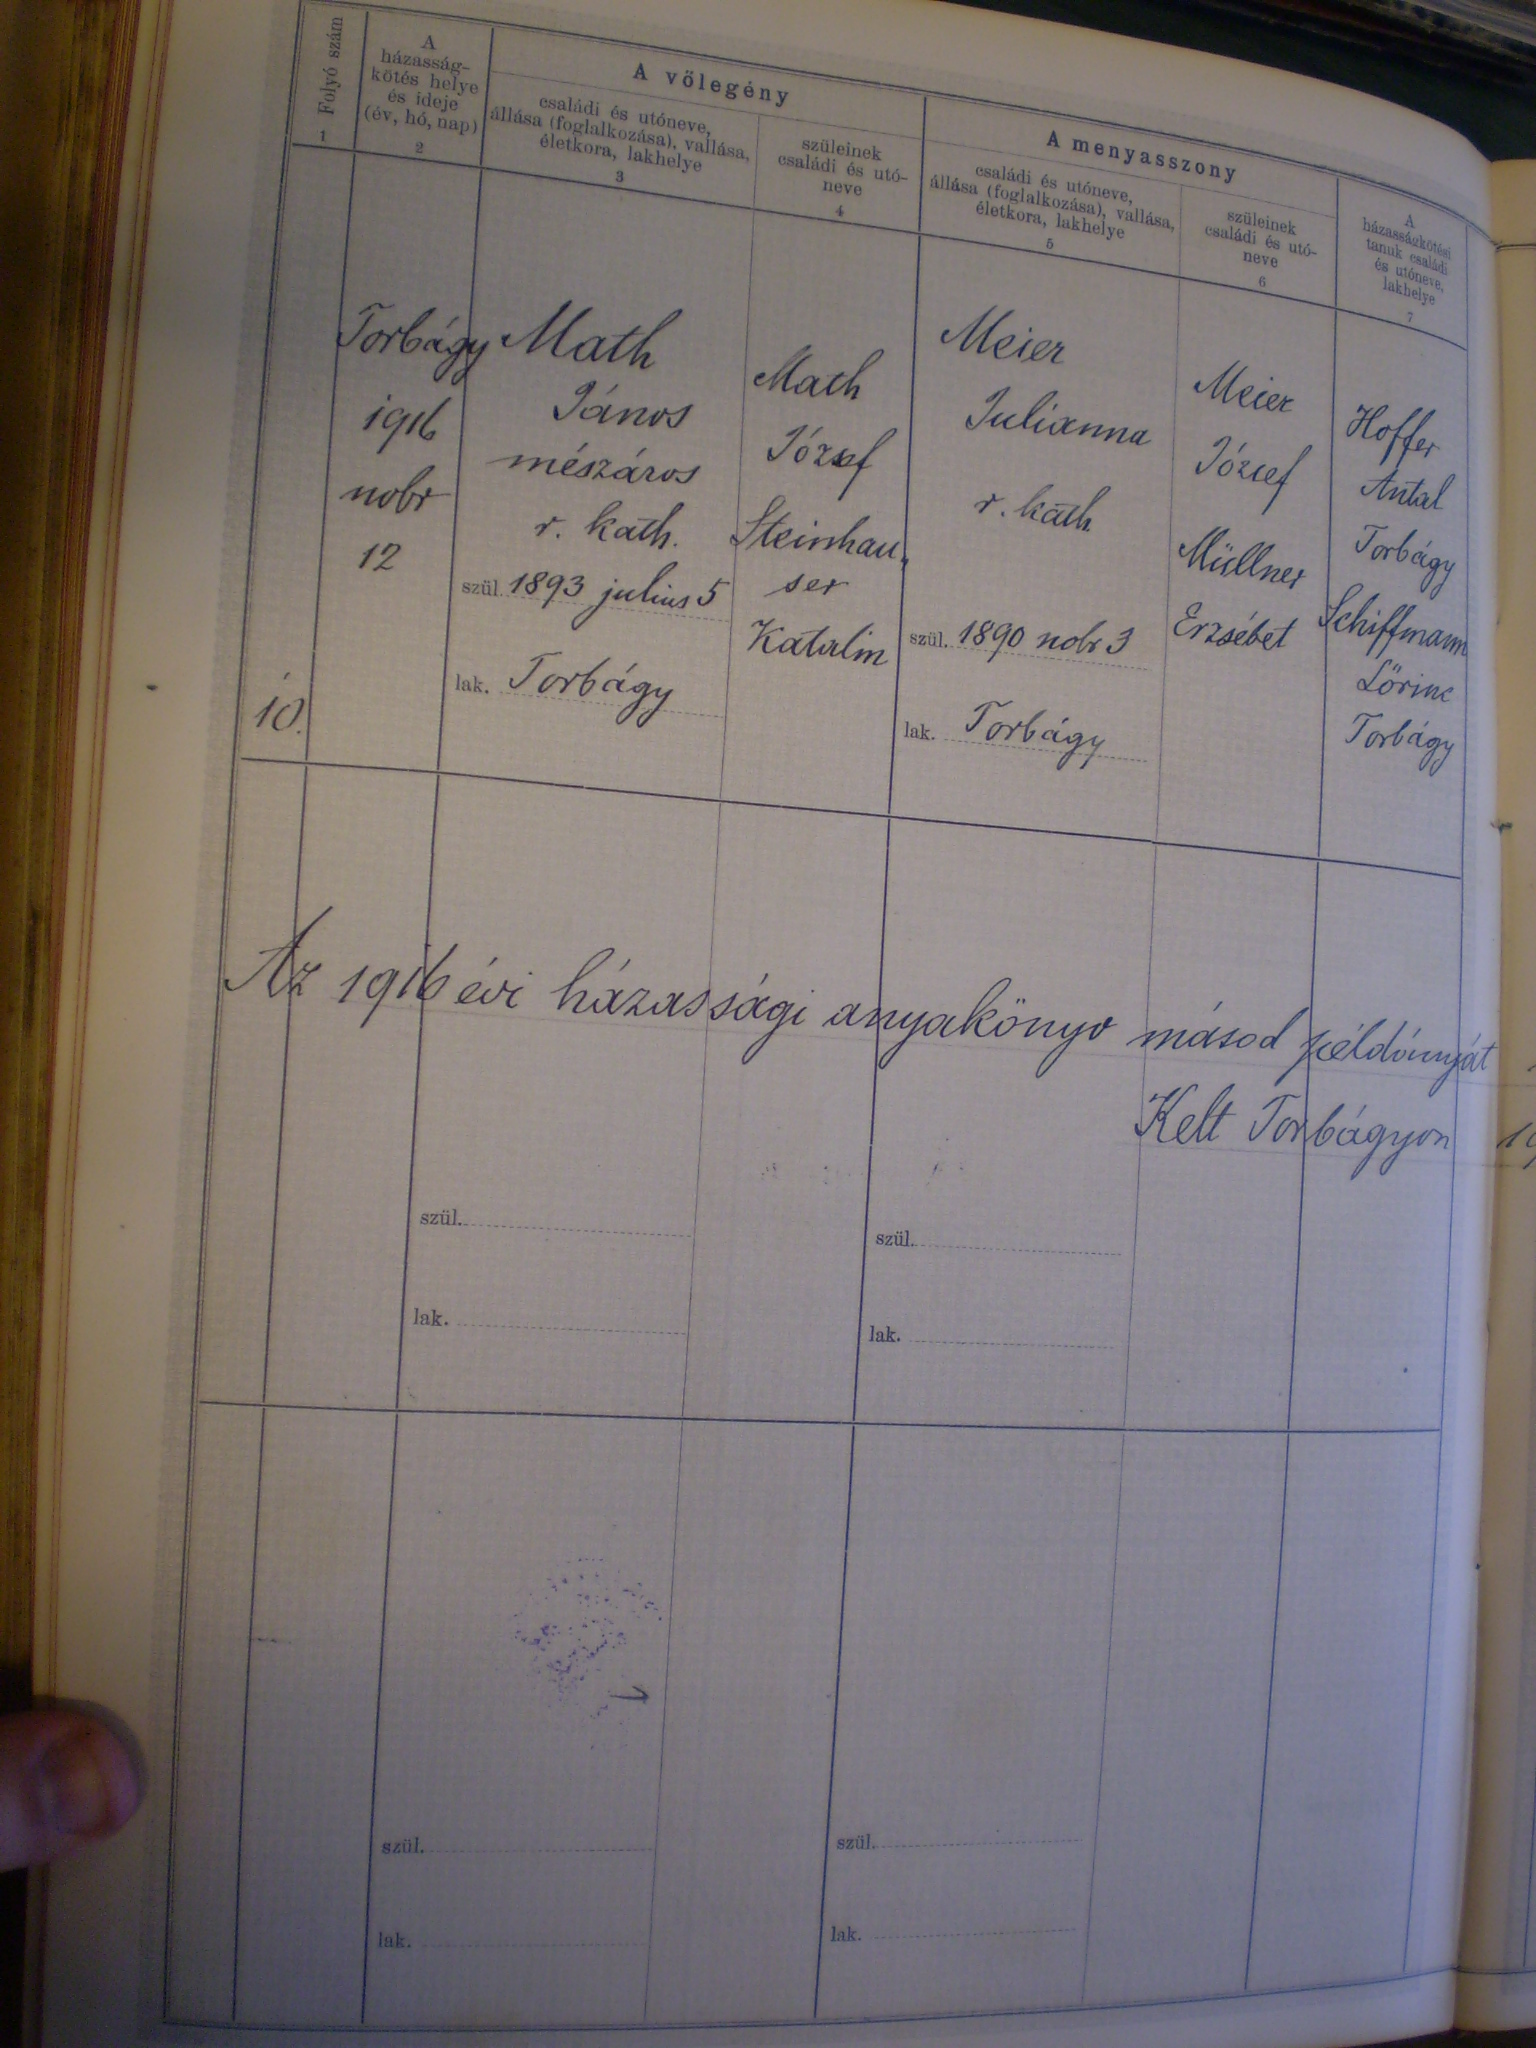 Folyó szám
1
A
házasság-
kötés helye
és ideje
(év, hó, nap)
2
A vőlegény
családi és utóneve,
állása (foglalkozása), vallása,
életkora, lakhelye
3
szüleinek
családi és utó-
neve
4
A menyasszony
családi és utóneve,
állása (foglalkozása), vallása,
életkora, lakhelye
5
szüleinek
családi és utó-
neve
6
A
házasságkötési
tanuk családi
és utóneve,
lakhelye
7
10.
Torbágy
1916
nobr
12
Math
János
mészáros
r. kath.
szül. 1893 julius 5
lak. Torbágy
Math
József
Steinhau„
ser
Katalin
Meier
Julianna
r. kath.
szül. 1890 nobr 3
lak. Torbágy
Meier
József
Müllner
Erzsébet
Hoffer
Antal
Torbágy
Schiffmann
Lőrinc
Torbágy
Az 1916 évi házassági anyakönyv másod példányát
Kelt Torbágyon
szül.
szül.
lak.
lak.
szül.
szül.
lak.
lak.